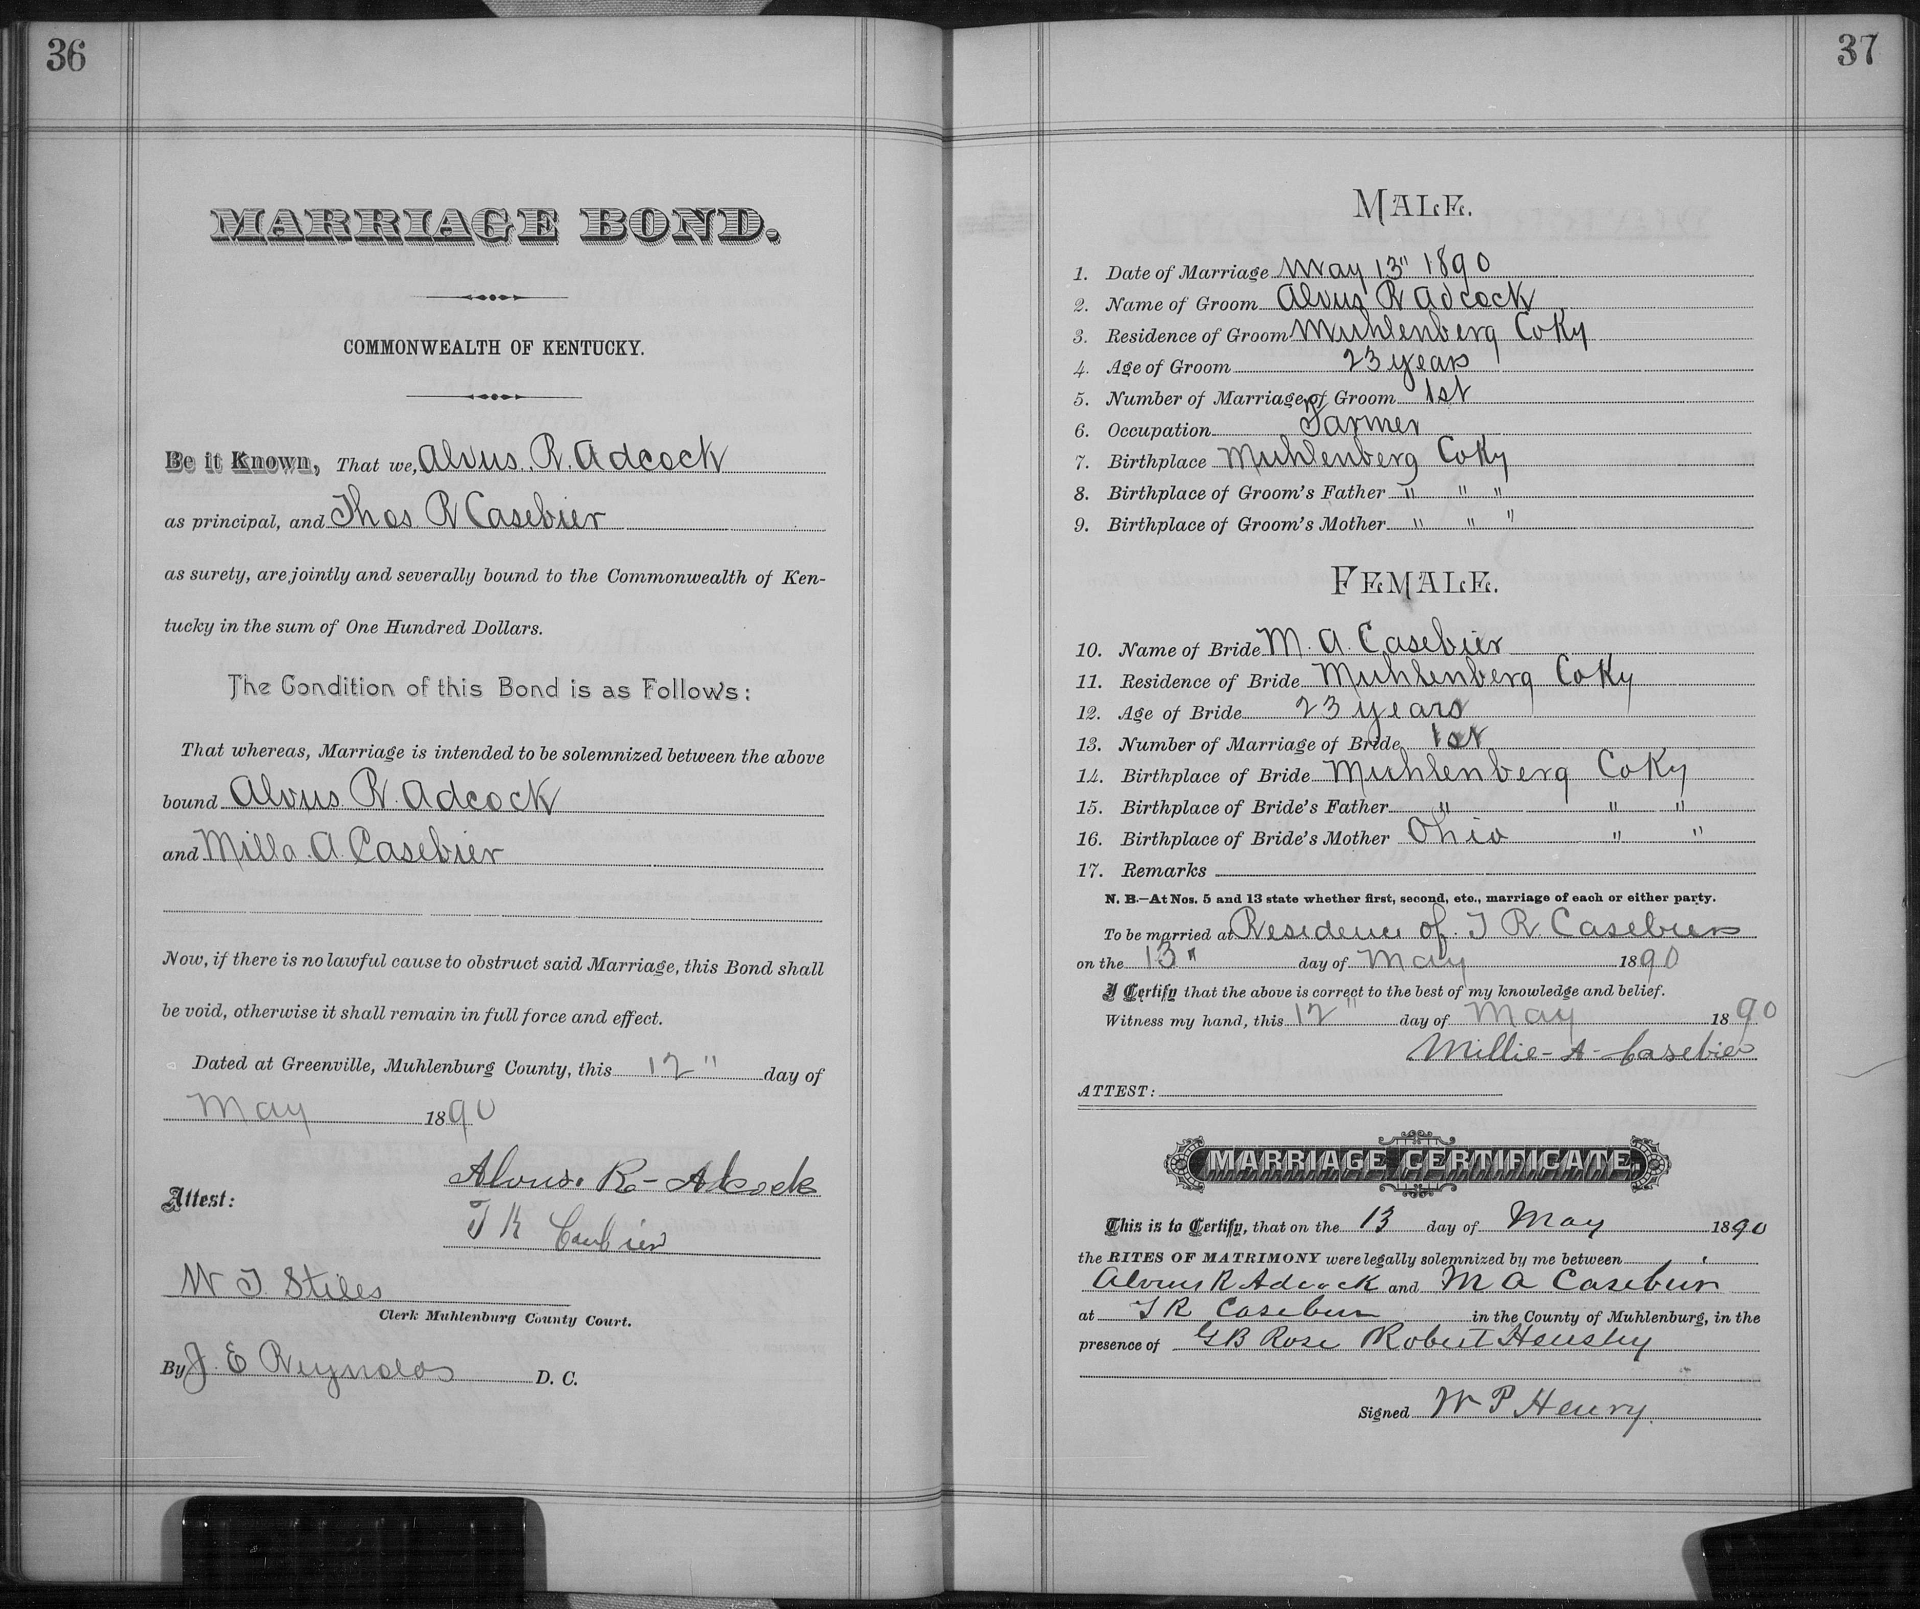 36
MARRIAGE BOND.
COMMONWEALTH OF KENTUCKY.
Be it Known, That we, Alvus. R. Adcock
as principal, and Thos R Casebier
as surety, are jointly and severally bound to the Commonwealth of Ken-
tucky in the sum of One Hundred Dollars.
The Condition of this Bond is as Follows:
That whereas, Marriage is intended to be solemnized between the above
bound Alvus R. Adcock
and Milla. A. Casebier
Now, if there is no lawful cause to obstruct said Marriage, this Bond shall
be void, otherwise it shall remain in full force and effect.
Dated at Greenville, Muhlenburg County, this 12" day of
May 1890
Alvus. R- Adcock
Attest:
T R Casebier
W T. Stiles
Clerk Muhlenburg County Court.
By J. E Reynolds D. C.
37
MALE.
1. Date of Marriage May 13" 1890
2. Name of Groom Alvus R Adcock
3. Residence of Groom Muhlenberg Co Ky
4. Age of Groom 23 years
5. Number of Marriage of Groom 1st
6. Occupation Farmer
7. Birthplace Muhlenberg Co Ky
8. Birthplace of Groom's Father " " "
9. Birthplace of Groom's Mother " " "
FEMALE.
10. Name of Bride M. A. Casebier
11. Residence of Bride Muhlenberg Co Ky
12. Age of Bride 23 years
13. Number of Marriage of Bride 1st
14. Birthplace of Bride Muhlenberg Co Ky
15. Birthplace of Bride's Father " " "
16. Birthplace of Bride's Mother Ohio " "
17. Remarks
N. B.—At Nos. 5 and 13 state whether first, second, etc., marriage of each or either party.
To be married at Residence of T R Casebiers
on the 13" day of May 1890
I Certify that the above is correct to the best of my knowledge and belief.
Witness my hand, this 12" day of May 1890
Millie- A- Casebier
ATTEST:
MARRIAGE CERTIFICATE.
This is to Certify, that on the 13 day of May 1890
the RITES OF MATRIMONY were legally solemnized by me between
Alvus R Adcock and M A Casebier
at T R Casebier in the County of Muhlenburg, in the
presence of G B Rose Robert Hensley
Signed W P Henry.